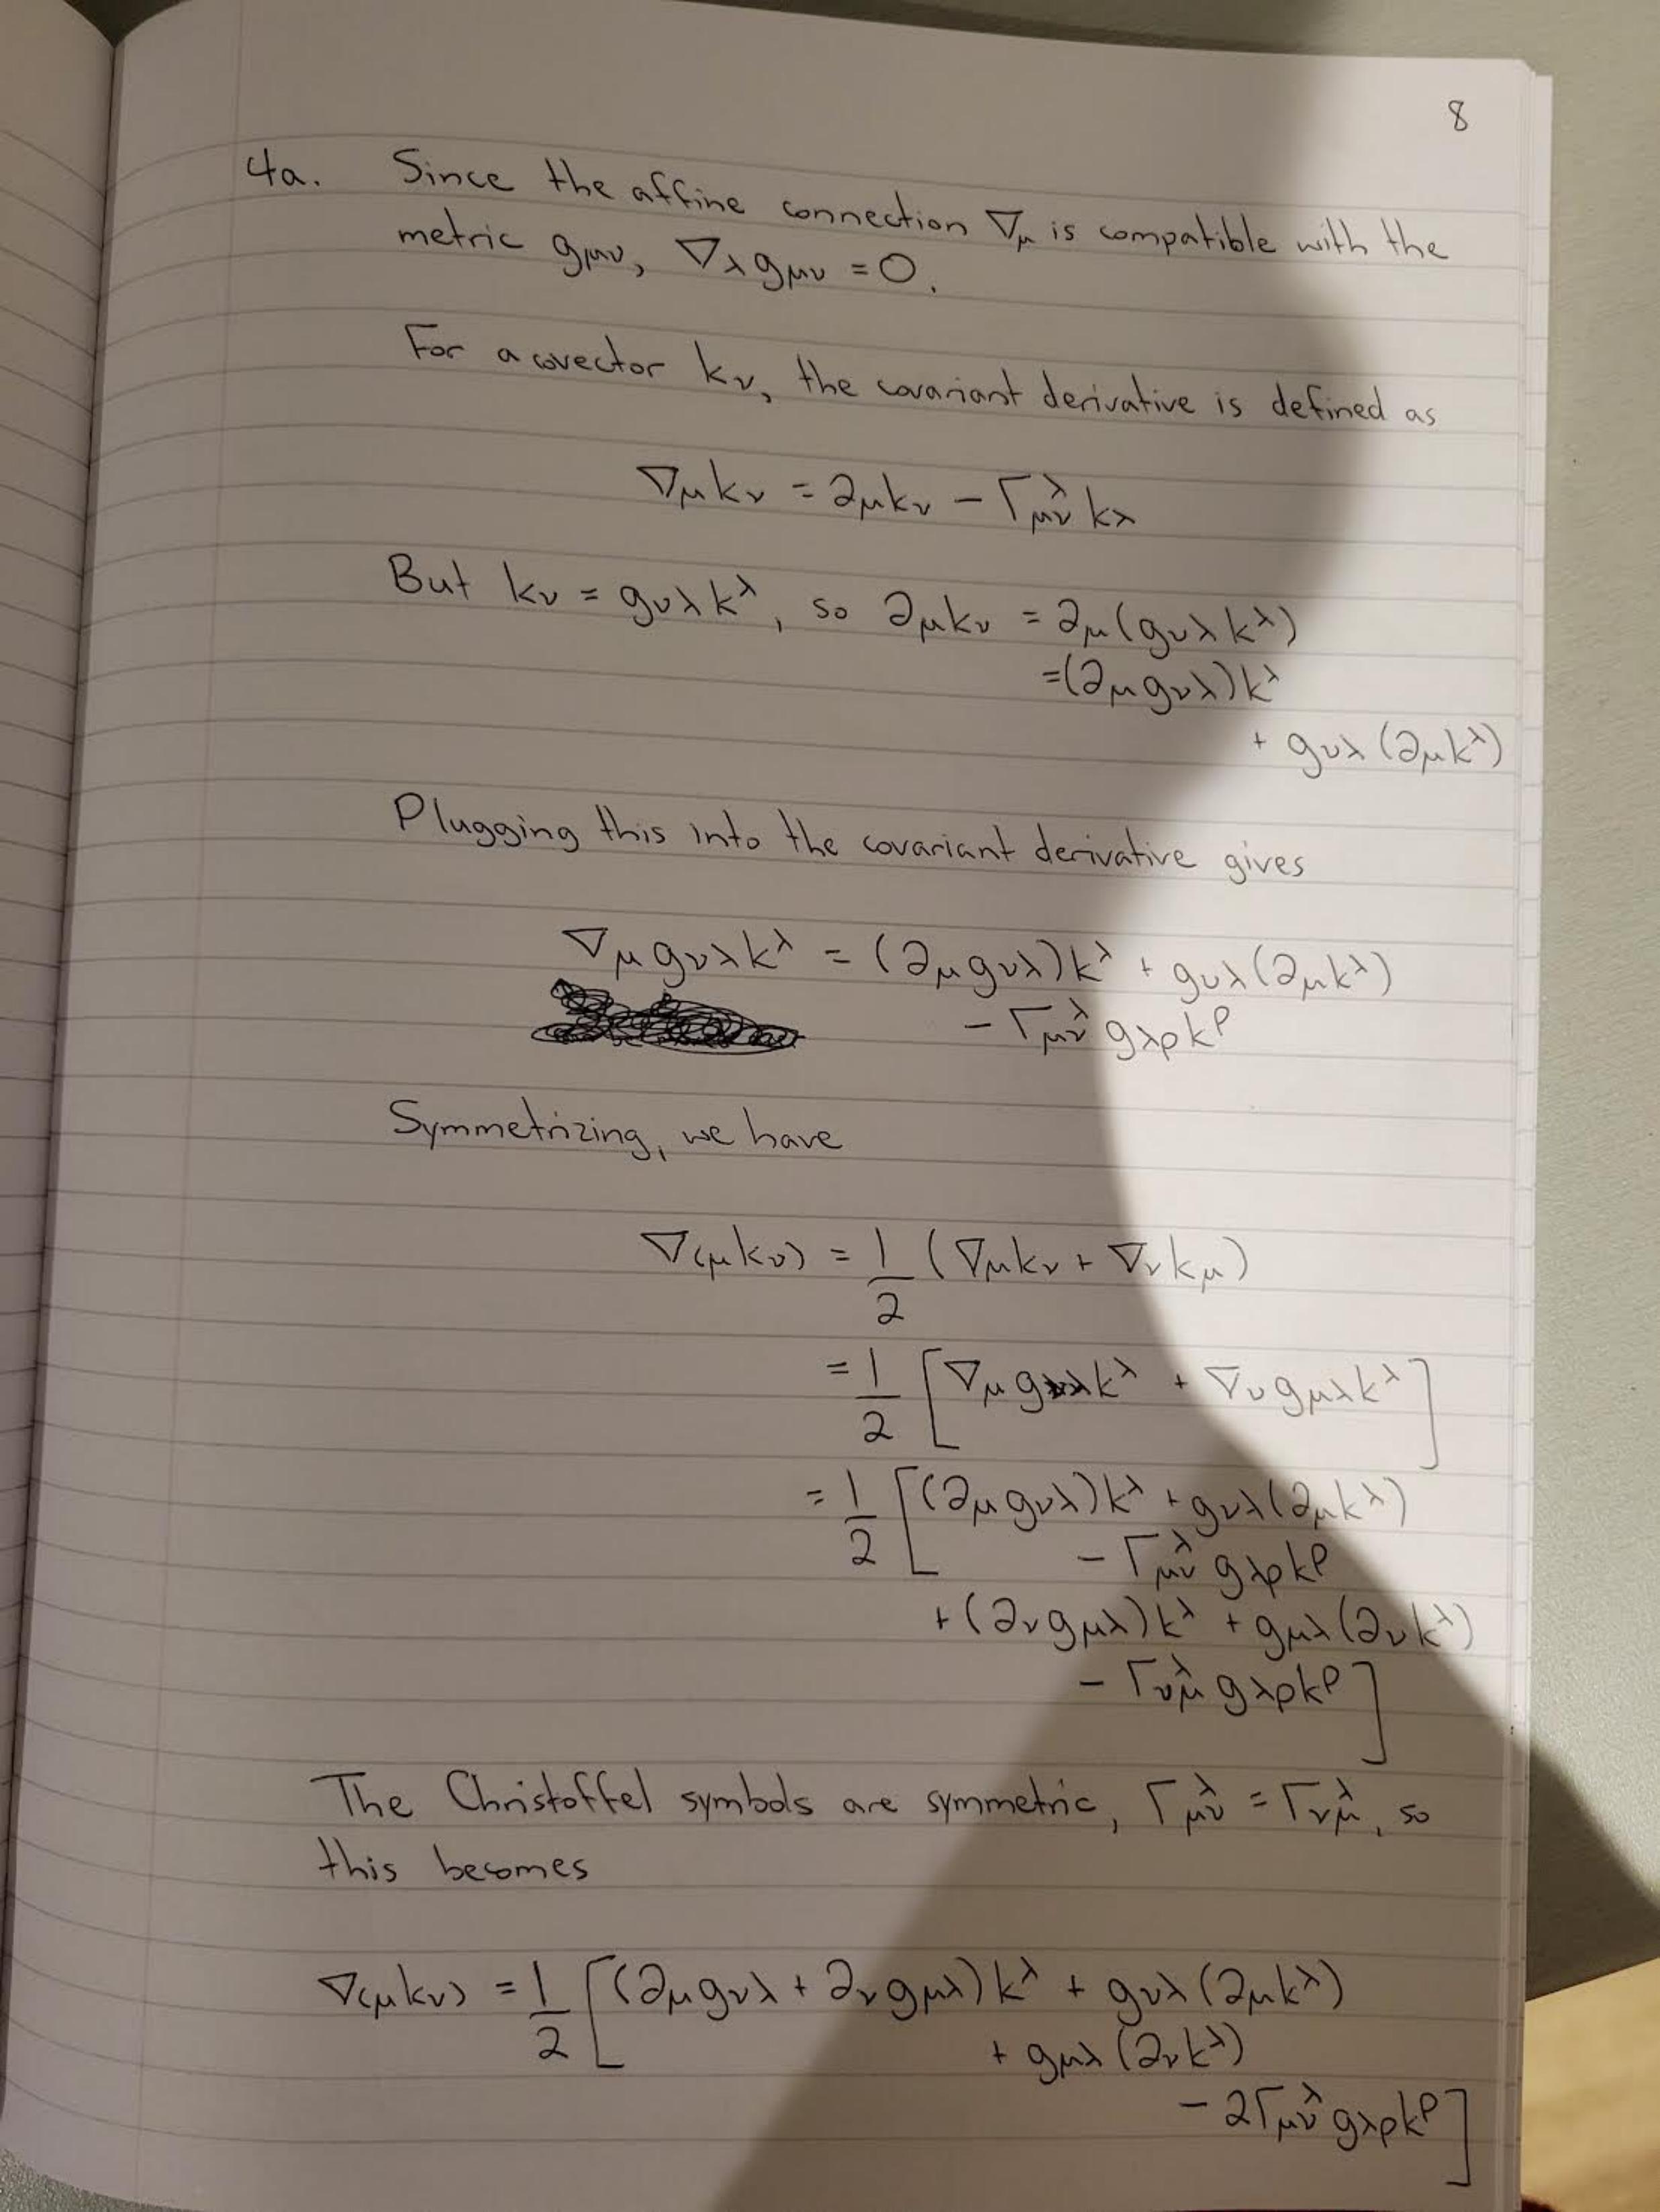 8
4a. Since the affine connection ∇_μ is compatible with the
metric g_μν, ∇_λ g_μν = 0.
For a covector k_ν, the covariant derivative is defined as
∇_μ k_ν = ∂_μ k_ν − Γ_μν^λ k_λ
But k_ν = g_νλ k^λ, so ∂_μ k_ν = ∂_μ (g_νλ k^λ)
= (∂_μ g_νλ) k^λ
+ g_νλ (∂_μ k^λ)
Plugging this into the covariant derivative gives
∇_μ g_νλ k^λ = (∂_μ g_νλ) k^λ + g_νλ (∂_μ k^λ)
− Γ_μν^λ g_λρ k^ρ
Symmetrizing, we have
∇_(μ k_ν) = 1/2 (∇_μ k_ν + ∇_ν k_μ)
= 1/2 [∇_μ g_νλ k^λ + ∇_ν g_μλ k^λ]
= 1/2 [(∂_μ g_νλ) k^λ + g_νλ (∂_μ k^λ)
− Γ_μν^λ g_λρ k^ρ
+ (∂_ν g_μλ) k^λ + g_μλ (∂_ν k^λ)
− Γ_νμ^λ g_λρ k^ρ]
The Christoffel symbols are symmetric, Γ_μν^λ = Γ_νμ^λ, so
this becomes
∇_(μ k_ν) = 1/2 [(∂_μ g_νλ + ∂_ν g_μλ) k^λ + g_νλ (∂_μ k^λ)
+ g_μλ (∂_ν k^λ)
− 2Γ_μν^λ g_λρ k^ρ]